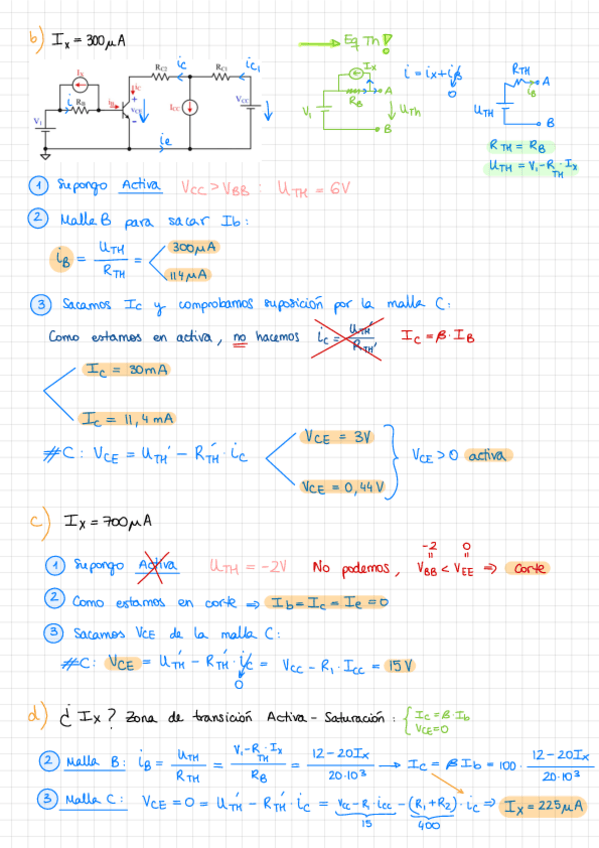 b) Ix = 300μA
Eq Th!
Ix
RC2 ic RC1 iC1
i = ix + iβ
0
RTH
A
iB
Ix
iC
i RB
iB
+
VCE
-
ICC
VCC
V1
RB
A
UTh
V1
B
UTH
B
ie
RTH = RB
UTH = V1 - RTH · Ix
1 Supongo Activa VCC > VBB : UTH = 6V
2 Malla B para sacar Ib:
iB = UTH / RTH = 300μA
114μA
3 Sacamos Ic y comprobamos suposición por la malla C:
Como estamos en activa, no hacemos ic = UTH' / RTH' Ic = β · IB
Ic = 30mA
Ic = 11,4 mA
#C: VCE = UTH' - RTH' · ic
VCE = 3V
VCE = 0,44V
VCE > 0 activa
c) Ix = 700μA
1 Supongo Activa UTH = -2V No podemos, VBB < VEE ⇒ Corte
-2 0
2 Como estamos en corte ⇒ Ib = Ic = Ie = 0
3 Sacamos VCE de la malla C:
#C: VCE = UTH' - RTH' · ic = VCC - R1 · ICC = 15V
0
d) ¿Ix? Zona de transición Activa - Saturación : { Ic = β · Ib
VCE = 0
2 Malla B: iB = UTH / RTH = V1 - RTH · Ix / RB = 12 - 20Ix / 20·10³ → Ic = β Ib = 100 · 12 - 20Ix / 20·10³
3 Malla C: VCE = 0 = UTH' - RTH' · ic = VCC - R1 · icc - (R1 + R2) · ic ⇒ Ix = 225μA
15 400